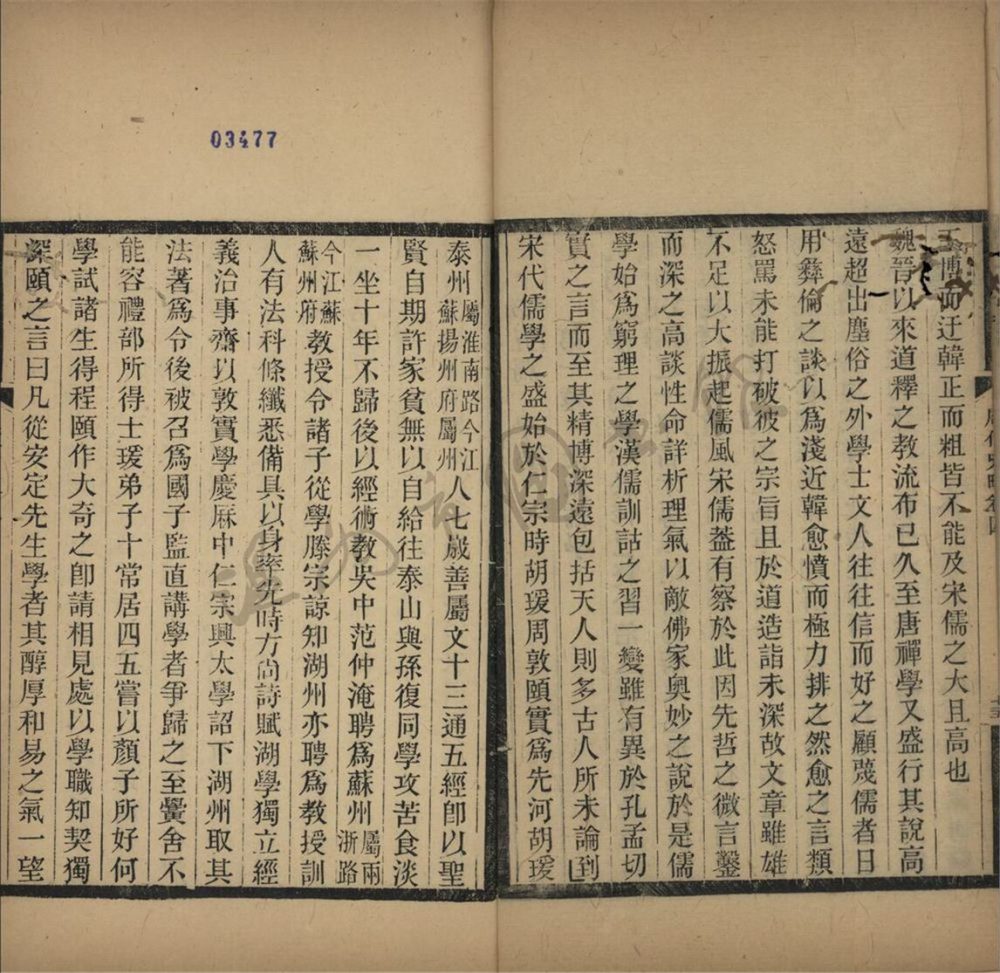 王博而迂韓正而粗皆不能及宋儒之大且高也
魏晉以來道釋之教流布已久至唐禪學又盛行其說高
遠超出塵俗之外學士文人往往信而好之顧蔑儒者日
用彝倫之談以爲淺近韓愈憤而極力排之然愈之言類
怒罵未能打破彼之宗旨且於道造詣未深故文章雖雄
不足以大振起儒風宋儒蓋有察於此因先哲之微言鑿
而深之高談性命詳析理氣以敵佛家奧妙之說於是儒
學始爲窮理之學漢儒訓詁之習一變雖有異於孔孟切
實之言而至其精博深遠包括天人則多古人所未論到
宋代儒學之盛始於仁宗時胡瑗周敦頤實爲先河胡瑗
泰州屬淮南路今江蘇揚州府屬州人七歲善屬文十三通五經卽以聖
賢自期許家貧無以自給往泰山與孫復同學攻苦食淡
一坐十年不歸後以經術教吳中范仲淹聘爲蘇州屬兩浙路
今江蘇蘇州府教授令諸子從學滕宗諒知湖州亦聘爲教授訓
人有法科條纖悉備具以身率先時方尚詩賦湖學獨立經
義治事齋以敦實學慶厤中仁宗興太學詔下湖州取其
法著爲令後被召爲國子監直講學者爭歸之至黌舍不
能容禮部所得士瑗弟子十常居四五嘗以顏子所好何
學試諸生得程頤作大奇之卽請相見處以學職知契獨
深頤之言曰凡從安定先生學者其醇厚和易之氣一望
03477